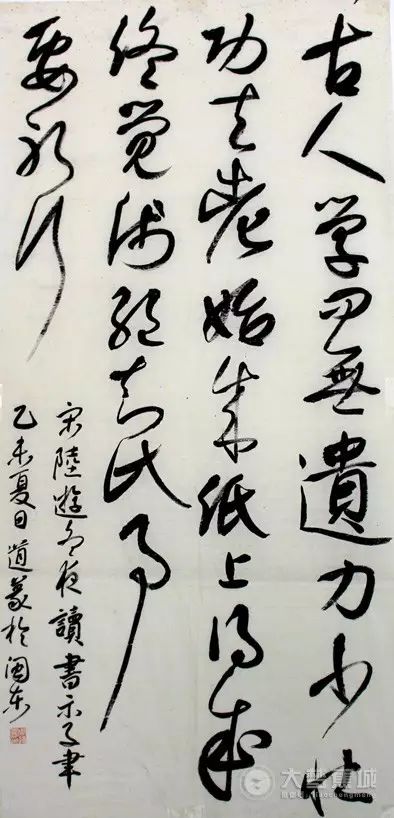 古人学问無遺力少壮
功夫老始成纸上得来
终觉浅绝知此事
要躬行
宋陸遊冬夜讀書示子聿
乙未夏日道於闽东
大艺蕉城